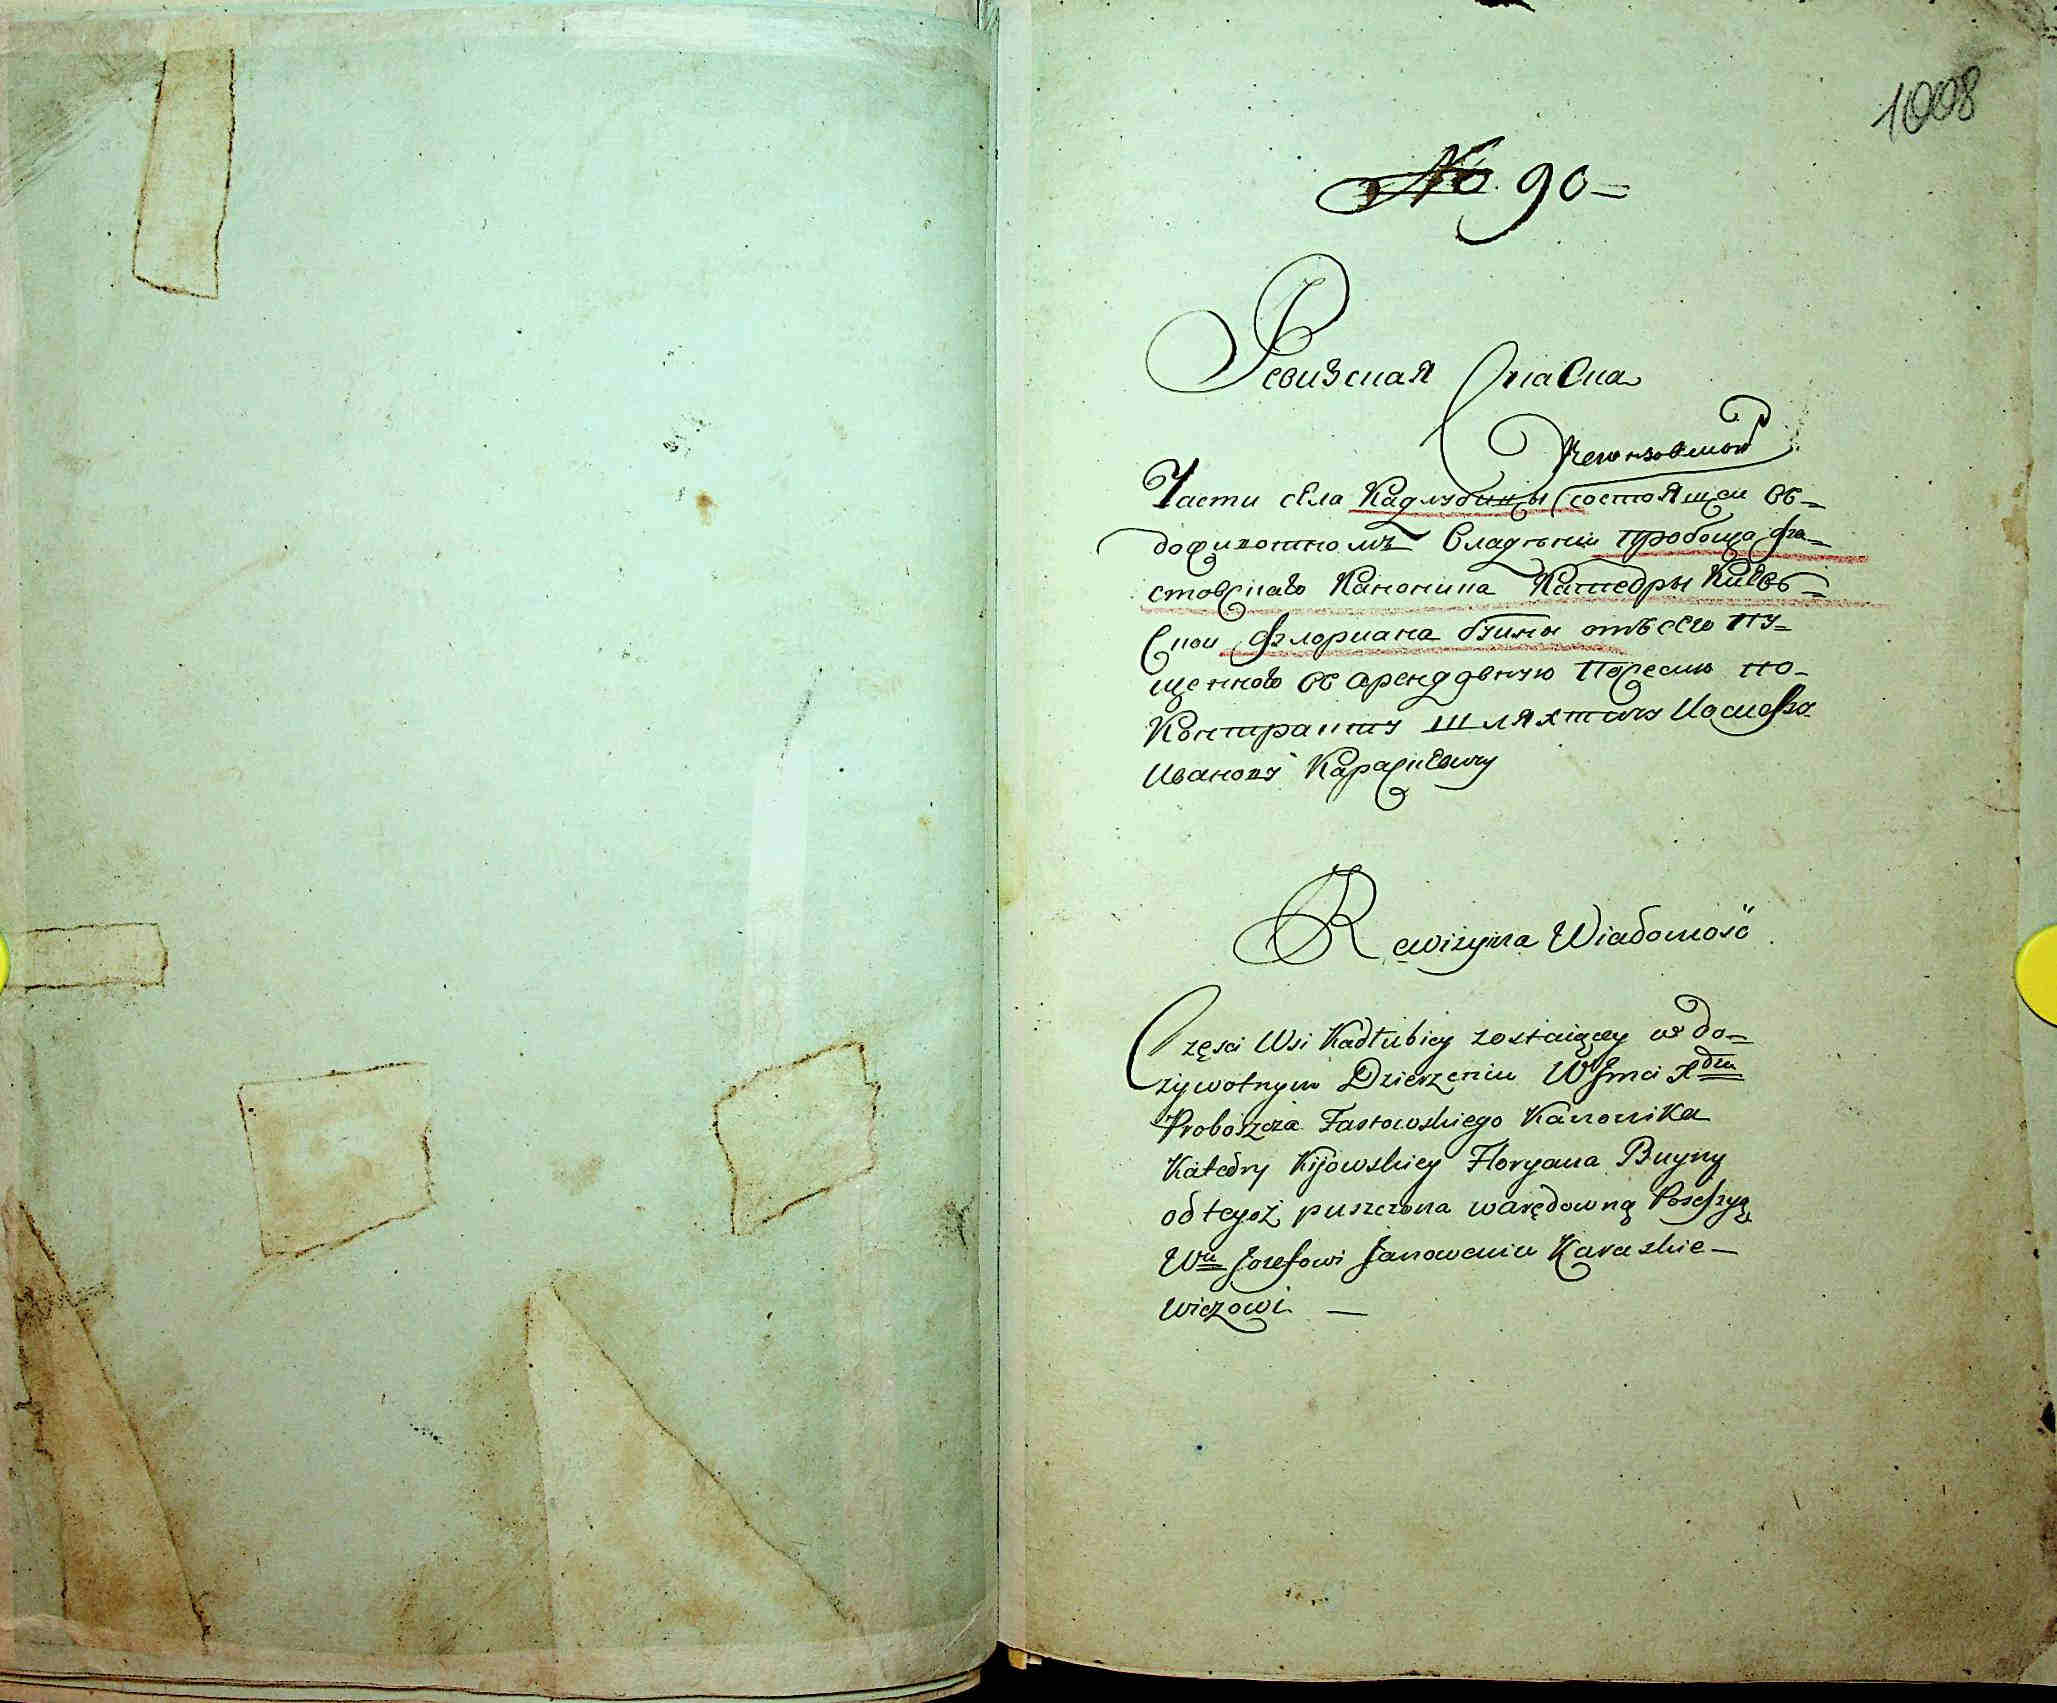 1008
№ 90 =
Ревизская Сказка
Части села Кадлубицы состоящеи въ=
доживотномъ Владѣнии пробоща фа=
стовскаго Каноника Катедры Киевъ=
Скои Флориана буины отъ сего пу=
щенного въ арендовную Посесию по-
Контракту шляхтичу Иосифа
Иванову Караскевичу
Rewizyina Wiadomość
Części Wsi Kadłubicy zostaiącey w do=
żywotnym Dzierżeniu WJmci Xdza
Proboszcza Fastowskiego Kanonika
Katedry Kijowskiey Floryana Buyny
od tegoż puszczona warędowną Possessyą
Wu Jozefowi Janowemu Karaskie—
wiczowi —